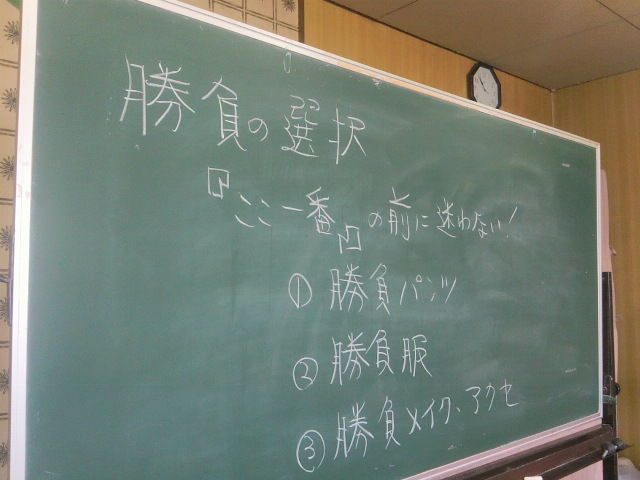 勝負の選択
『ここ一番』の前に迷わない!
① 勝負パンツ
② 勝負服
③ 勝負メイク、アクセ